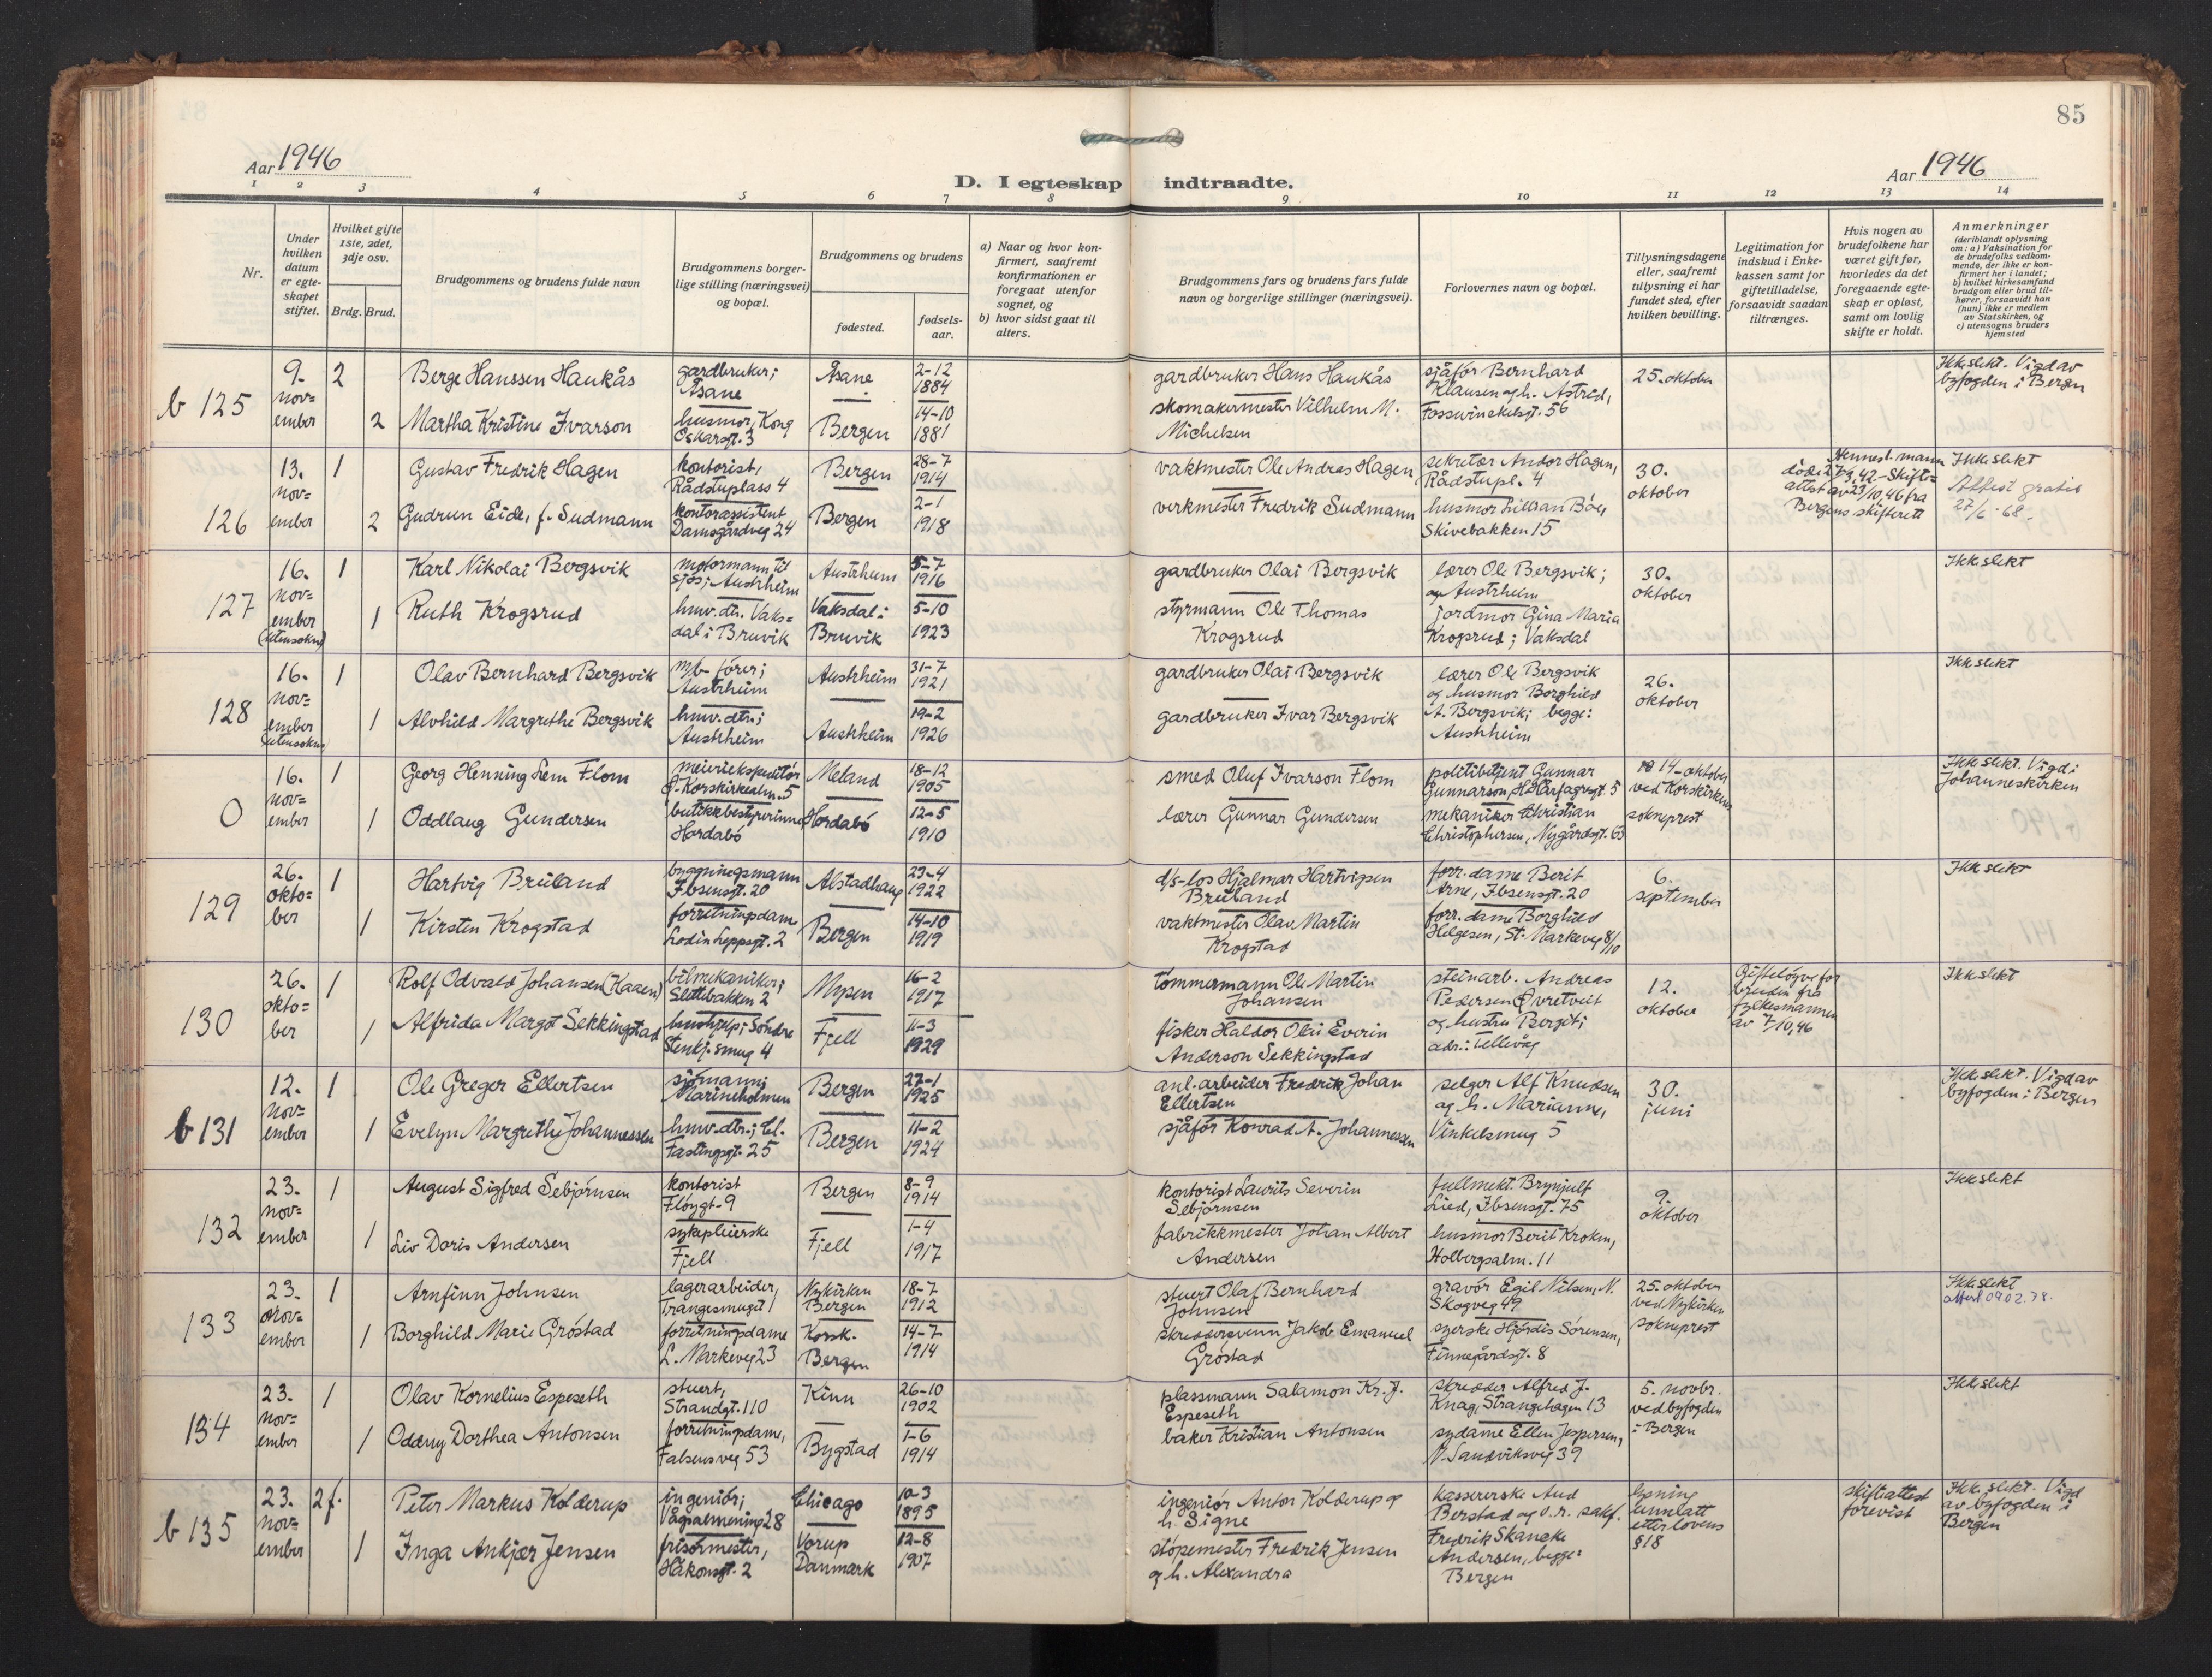 85
Aar 1946
Aar 1946
D. I egteskap indtraadte.
1 2 3 4 5 6 7 8 9 10 11 12 13 14
Nr.
Under hvilken datum er egteskapet stiftet.
Hvilket gifte 1ste, 2det, 3dje osv.
Brdg. Brud.
Brudgommens og brudens fulde navn
Brudgommens borgerlige stilling (næringsvei) og bopæl.
Brudgommens og brudens
fødested.
fødselsaar.
a) Naar og hvor konfirmert, saafremt konfirmationen er foregaat utenfor sognet, og
b) hvor sidst gaat til alters.
Brudgommens fars og brudens fars fulde navn og borgerlige stillinger (næringsvei).
Forlovernes navn og bopæl.
Tillysningsdagene eller, saafremt tillysning ei har fundet sted, efter hvilken bevilling.
Legitimation for indskud i Enkekassen samt for giftetilladelse, forsaavidt saadan tiltrænges.
Hvis nogen av brudefolkene har været gift før, hvorledes da det foregaaende egteskap er opløst, samt om lovlig skifte er holdt.
Anmerkninger
(deriblandt oplysning om: a) Vaksination for de brudefolks vedkommende, der ikke er konfirmert her i landet;
b) hvilket kirkesamfund brudgom eller brud tilhører, forsaavidt han (hun) ikke er medlem av Statskirken, og
c) utensogns bruders hjemsted
b 125
9. november
2
Berge Hanssen Haukås
gardbruker; Åsane
Åsane
2-12 1884
gardbruker Hans Haukås
sjåfør Bernhard Klausen og h. Astrid, Fosswinckelsgt. 56
25. oktober
Ikke slekt. Vigd av byfogden i Bergen
2
Martha Kristine Ivarson
husmor, Kong Oskarsgt. 3
Bergen
14-10 1881
skomakermester Vilhelm M. Michelsen
126
13. november
1
Gustav Fredrik Hagen
kontorist, Rådstuplass 4
Bergen
28-7 1914
vaktmester Ole Andreas Hagen
sekretær Andor Hagen, Rådstupl. 4
30. oktober
Hennes f. mann døde 27/9, 42 - Skifteattest av 23/10, 46 fra Bergens skifterett
Ikke slekt
Attest gratis 27/6-68.
2
Gudrun Eide, f. Sudmann
kontorassistent Damsgårdveg 24
Bergen
2-1 1918
verkmester Fredrik Sudmann
husmor Lillian Bøe, Skivebakken 15
127
16. november (utensokns)
1
Karl Nikolai Bergsvik
motormann til sjøs; Austrheim
Austrheim
5-7 1916
gardbruker Olai Bergsvik
lærer Ole Bergsvik; og Austrheim
30. oktober
Ikke slekt
1
Ruth Krogsrud
hmv. dtr. Vaksdal i Bruvik
Vaksdal i Bruvik
5-10 1923
styrmann Ole Thomas Krogsrud
jordmor Gina Maria Krogsrud; Vaksdal
128
16. november (utensokns)
1
Olav Bernhard Bergsvik
m/b fører; Austrheim
Austrheim
31-7 1921
gardbruker Olai Bergsvik
lærer Ole Bergsvik og husmor Borghild A. Bergsvik; begge: Austrheim
26. oktober
Ikke slekt
1
Alvhild Margrethe Bergsvik
hmv. dtr.; Austrheim
Austrheim
19-2 1926
gardbruker Ivar Bergsvik
0
16. november
1
Georg Henning Lem Flom
meieriekspeditør Ø. Korskirkealm. 5
Meland
18-12 1905
smed Oluf Ivarson Flom
politibetjent Gunnar Gunnarson, H. Hårfagresgt. 5
14. oktober ved Korskirkens sokneprest
Ikke slekt. Vigd i Johanneskirken
1
Oddlaug Gundersen
butikkbestyrerinne Hordabø
Hordabø
12-5 1910
lærer Gunnar Gundersen
mekaniker Christian Christophersen, Nygårdsgt. 63
129
26. oktober
1
Hartvig Brüland
bygningsmann Ibsensgt. 20
Alstadhaug
23-4 1922
d/s-los Hjalmar Hartvigsen Brüland
forr. dame Berit Arne, Ibsensgt. 20
6. september
Ikke slekt
1
Kirsten Krogstad
forretningsdame Lodin Leppsgt. 2
Bergen
14-10 1919
vaktmester Olav Martin Krogstad
forr. dame Borghild Helgesen, St. Markeveg 8/10
130
26. oktober
1
Rolf Odvald Johansen (Kaaen)
bilmekaniker; Slettebakken 2
Mysen
16-2 1917
tømmermann Ole Martin Johansen
steinarb. Andreas Pedersen Øvretveit og hustru Bergit; adr.: Tellevåg
12. oktober
Gifteløyve for bruden fra fylkesmannen av 7/10, 46
Ikke slekt
1
Alfrida Margot Sekkingstad
hushjelp; Søndre Stenkj. smug 4
Fjell
11-3 1929
fisker Haldor Olai Everin Anderson Sekkingstad
b 131
12. november
1
Ole Greger Ellertsen
sjømann; Marineholmen
Bergen
27-1 1925
anl. arbeider Fredrik Johan Ellertsen
selger Alf Knudsen og h. Marianne, Vinkelsmug 5
30. juni
Ikke slekt. Vigd av byfogden i Bergen
1
Evelyn Margrethe Johannessen
hmv. dtr.; Cl. Fastingsgt. 25
Bergen
11-2 1924
sjåfør Konrad A. Johannessen
132
23. november
1
August Sigfred Sebjørnsen
kontorist Fløygt. 9
Bergen
8-9 1914
kontorist Laurits Severin Sebjørnsen
fullmekt. Brynjulf Lied, Ibsensgt. 75
9. oktober
Ikke slekt
1
Liv Doris Andersen
sykepleierske Fjell
Fjell
1-4 1917
fabrikkmester Johan Albert Andersen
husmor Berit Kroken, Holbergsalm. 11
133
23. november
1
Arnfinn Johnsen
lagerarbeider, Trangesmuget 1
Nykirken Bergen
18-7 1912
stuert Olaf Bernhard Johnsen
gravør Egil Nilsen, N. Skogveg 49
25. oktober ved Nykirken sokneprest
Ikke slekt
attest 09.02.78.
1
Borghild Marie Grøstad
forretningsdame L. Markeveg 23
Korsk. Bergen
14-7 1914
skreddersvenn Jakob Emanuel Grøstad
syerske Hjørdis Sørensen, Finnegårdsgt. 8
134
23. november
1
Olav Kornelius Espeseth
stuert, Strandgt. 110
Kinn
26-10 1902
plassmann Salamon Kr. J. Espeseth
skredder Alfred J. Knag, Strangehagen 13
5. novbr. ved byfogden i Bergen
Ikke slekt
1
Oddny Dorthea Antonsen
forretningsdame, Falsens veg 53
Bygstad
1-6 1914
baker Kristian Antonsen
sydame Ellen Jespersen, N. Sandviksveg 39
b 135
23. november
2 f.
Peter Markus Kolderup
ingeniør; Vågsalmening 28
Chicago
10-3 1895
ingeniør Anton Kolderup og h. Signe
kassererske Aud Berstad og o.r. sakf. Fredrik Skancke Andersen, begge: Bergen
lysning unnlatt etter lovens § 18
skifteattest forevist
Ikke slekt. Vigd av byfogden i Bergen
1
Inga Ankjær Jensen
frisørmester, Håkonsgt. 2
Vorup Danmark
12-8 1907
støpemester Fredrik Jensen og h. Alexandra